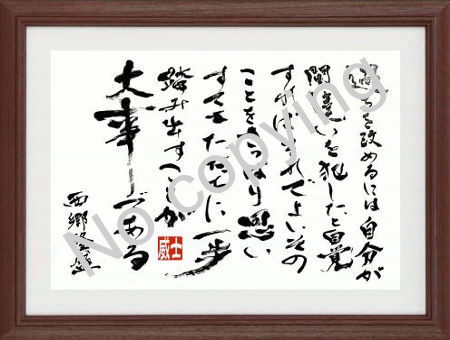 過ちを改めるには自分が
間違いを犯したと自覚
すればそれでよいその
ことをさっぱり思い
すててただちに一歩
踏み出すことが
大事である
西郷隆盛
士威
No copying